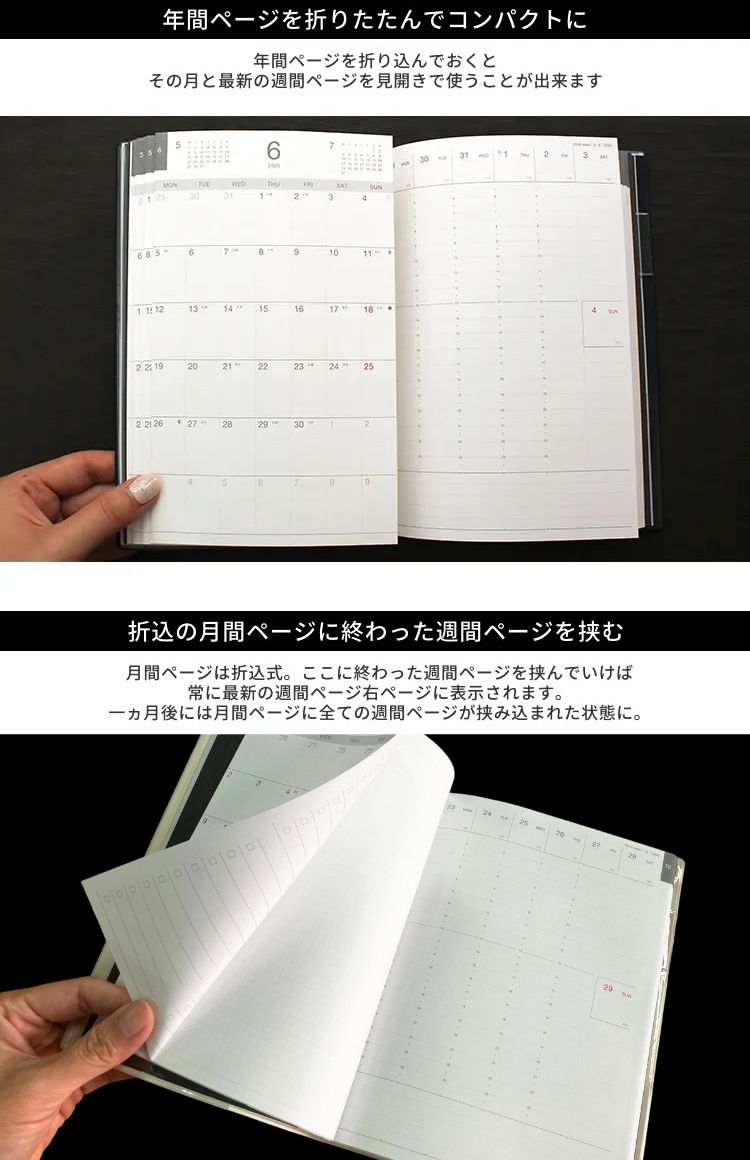 年間ページを折りたたんでコンパクトに
年間ページを折り込んでおくと
その月と最新の週間ページを見開きで使うことが出来ます
3 5 6
5 6 7
2023
MON TUE WED THU FRI SAT SUN
29 30 31 1 2 3 4
6 8 5 6 7 8 9 10 11
12 13 14 15 16 17 18
19 20 21 22 23 24 25
26 27 28 29 30 1 2
4 5 6 7 8 9
MON 30 TUE 31 WED 1 THU 2 FRI 3 SAT
4 SUN
折込の月間ページに終わった週間ページを挟む
月間ページは折込式。ここに終わった週間ページを挟んでいけば
常に最新の週間ページ右ページに表示されます。
一ヵ月後には月間ページに全ての週間ページが挟み込まれた状態に。
26 27 28
2 3 4
9
23 MON 24 TUE 25 WED 26 THU 27 FRI 28 SAT
12
29 SUN